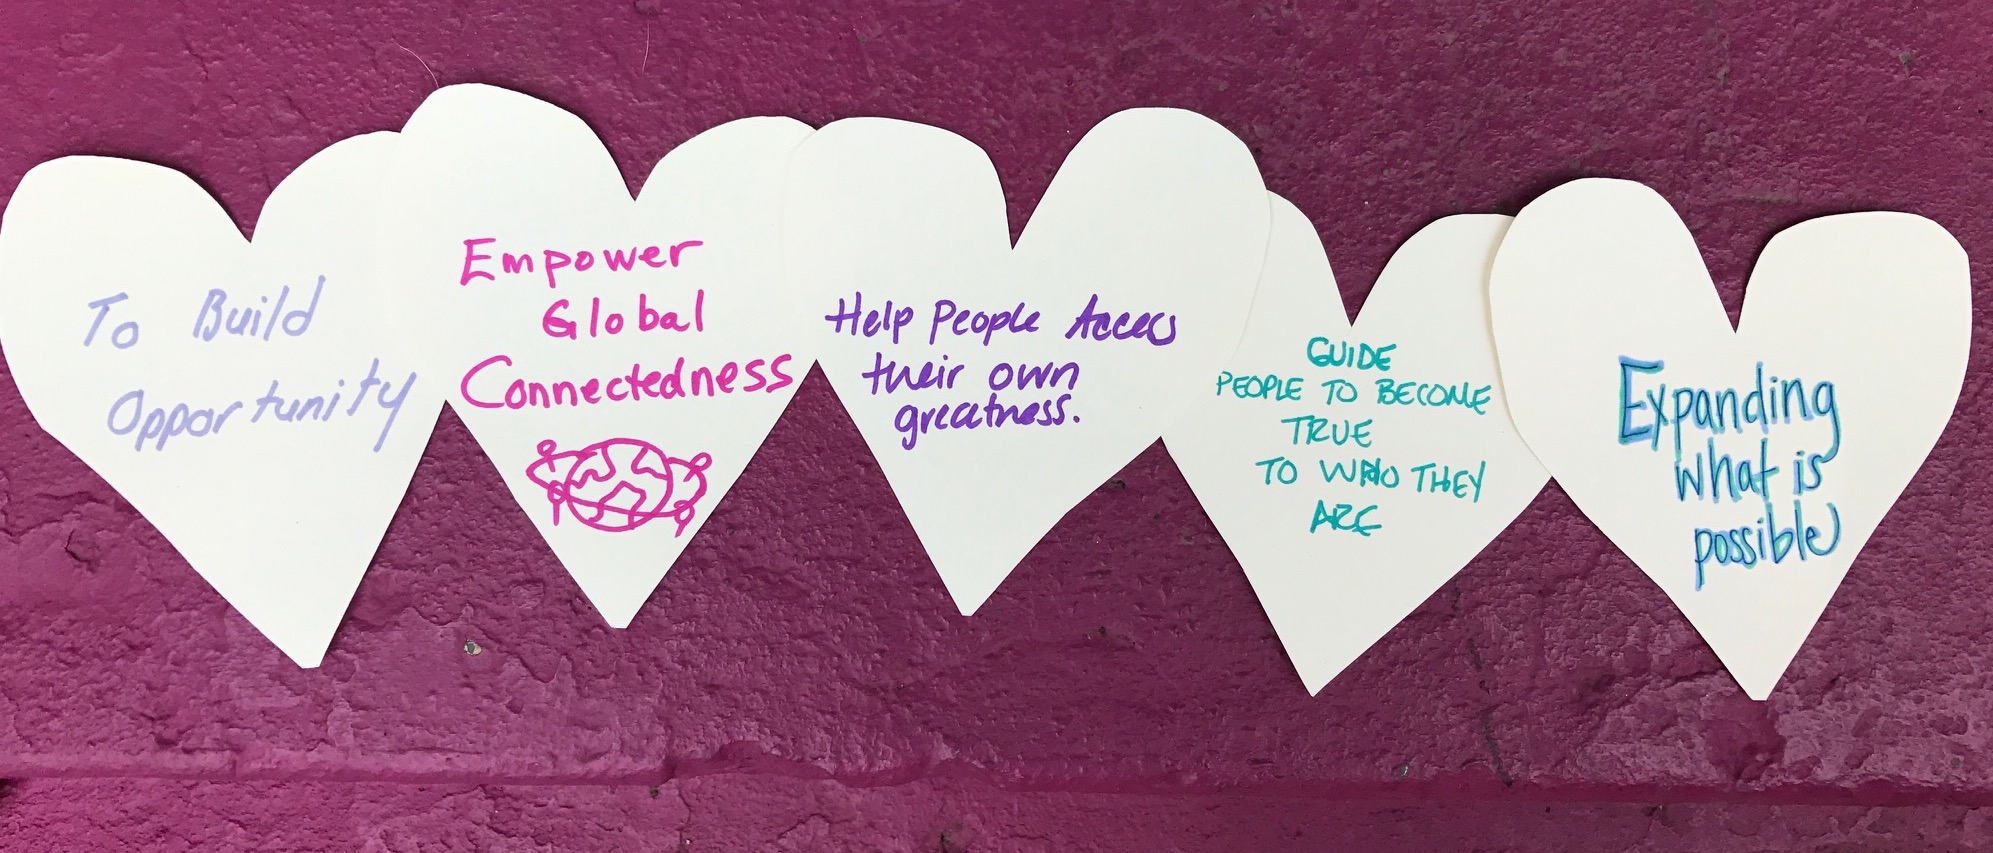 To Build
Opportunity
Empower
Global
Connectedness
Help People Access
their own
greatness.
GUIDE
PEOPLE TO BECOME
TRUE
TO WHO THEY
ARE
Expanding
what is
possible